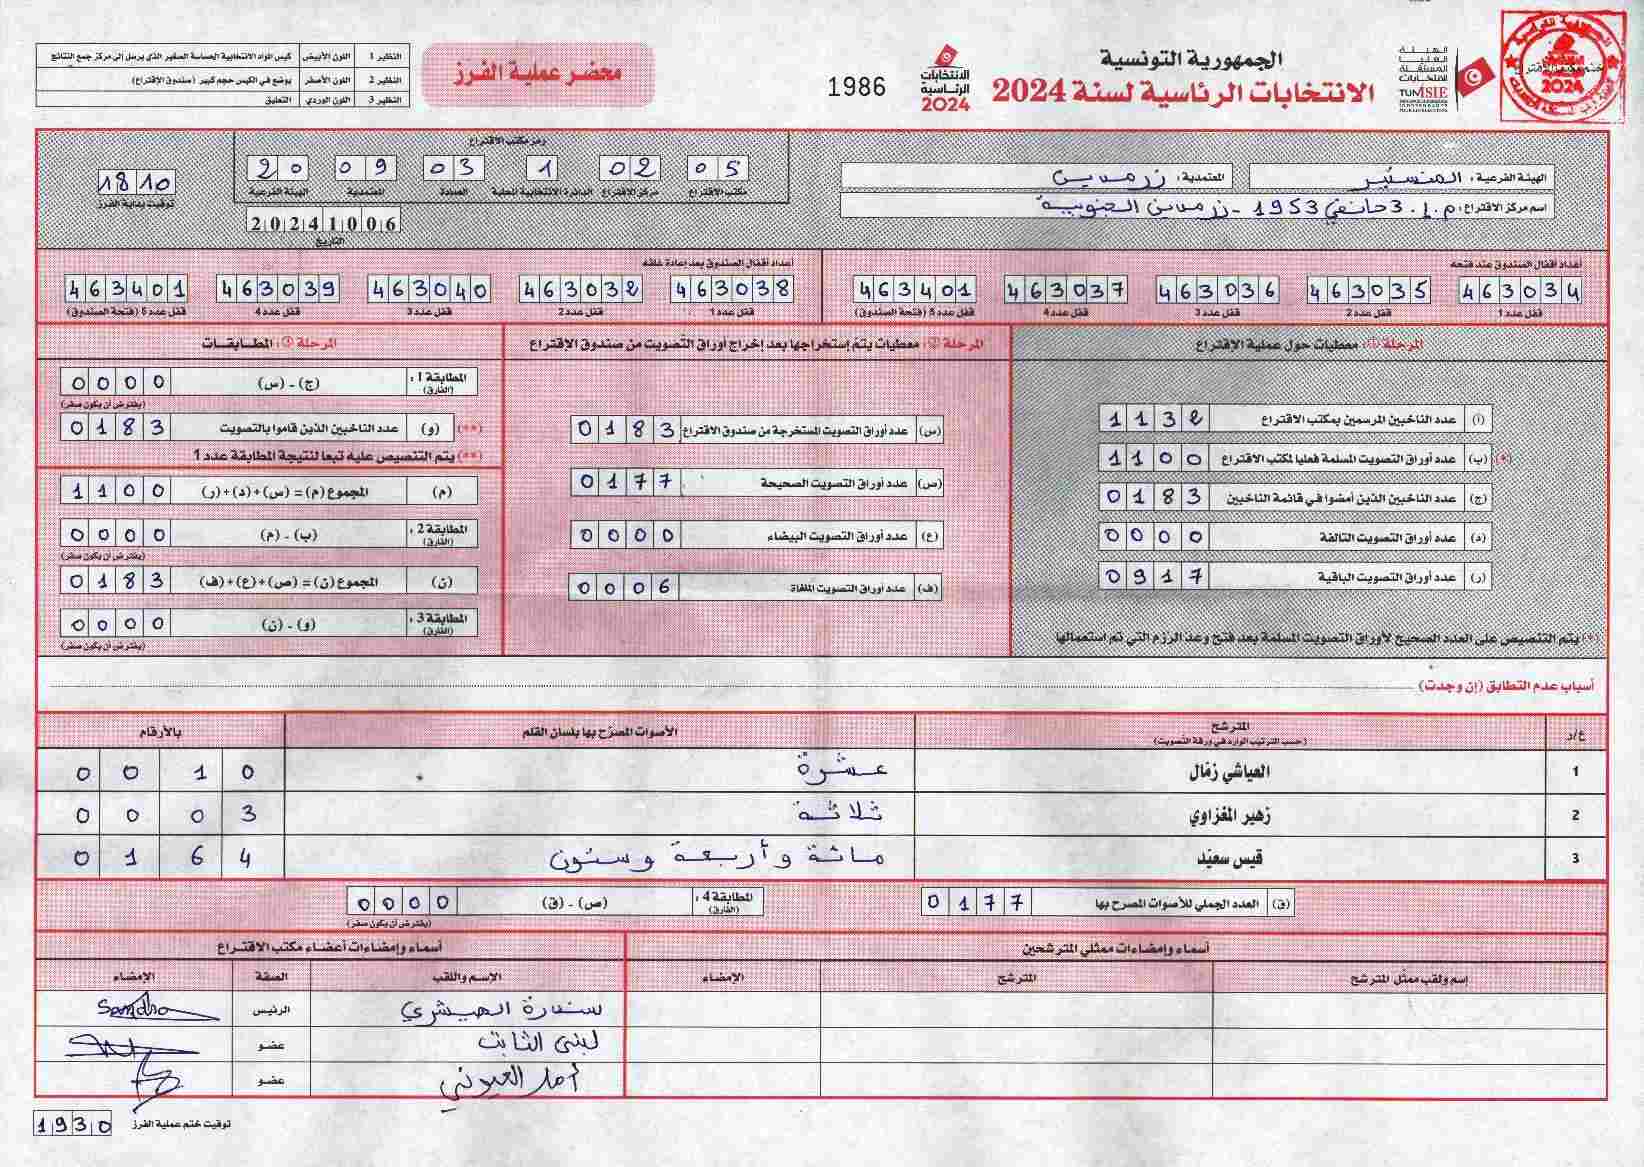 الجمهورية التونسية
الانتخابات الرئاسية لسنة 2024
الهيئة العليا المستقلة للانتخابات
TUNISIE
2024
الانتخابات الرئاسية 2024
1986
محضر عملية الفرز
النظير 1 اللون الأبيض كيس المواد الانتخابية الحساسة الصغير الذي يرسل إلى مركز جمع النتائج
النظير 2 اللون الأصفر يوضع في الكيس حجم كبير (صندوق الاقتراع)
النظير 3 اللون الوردي التعليق
الهيئة الفرعية: المنستير المعتمدية: زرمدين
اسم مركز الاقتراع: م.إ. 3 جانفي 1953 - زرمدين الجنوبية
رمز مكتب الاقتراع
20 09 03 1 02 05
مكتب الاقتراع مركز الاقتراع الدائرة الانتخابية المحلية العمادة المعتمدية الهيئة الفرعية
20241006
التاريخ
1810
توقيت بداية الفرز
أعداد أقفال الصندوق عند فتحه
463034 463035 463036 463037 463401
قفل عدد 1 قفل عدد 2 قفل عدد 3 قفل عدد 4 قفل عدد 5 (فتحة الصندوق)
أعداد أقفال الصندوق بعد إعادة غلقه
463038 463032 463040 463039 463401
قفل عدد 1 قفل عدد 2 قفل عدد 3 قفل عدد 4 قفل عدد 5 (فتحة الصندوق)
المرحلة 1: معطيات حول عملية الاقتراع
(أ) عدد الناخبين المرسمين بمكتب الاقتراع 1132
(*) (ب) عدد أوراق التصويت المسلمة فعليا لمكتب الاقتراع 1100
(ج) عدد الناخبين الذين أمضوا في قائمة الناخبين 0183
(د) عدد أوراق التصويت التالفة 0000
(ر) عدد أوراق التصويت الباقية 0917
(*) يتم التنصيص على العدد الصحيح لأوراق التصويت المسلمة بعد فتح وعد الرزم التي تم استعمالها
المرحلة 2: معطيات يتم إستخراجها بعد إخراج أوراق التصويت من صندوق الاقتراع
(س) عدد أوراق التصويت المستخرجة من صندوق الاقتراع 0183
(ص) عدد أوراق التصويت الصحيحة 0177
(ع) عدد أوراق التصويت البيضاء 0000
(ف) عدد أوراق التصويت الملغاة 0006
المرحلة 3: المطابقات
المطابقة 1: (الفارق) (ج) - (س) 0000
(يفترض أن يكون صفر)
(**) (و) عدد الناخبين الذين قاموا بالتصويت 0183
(**) يتم التنصيص عليه تبعا لنتيجة المطابقة عدد 1
(م) المجموع (م) = (س)+(د)+(ر) 1100
المطابقة 2: (الفارق) (ب) - (م) 0000
(يفترض أن يكون صفر)
(ن) المجموع (ن) = (ص)+(ع)+(ف) 0183
المطابقة 3: (الفارق) (و) - (ن) 0000
(يفترض أن يكون صفر)
أسباب عدم التطابق (إن وجدت)
ع/د المترشح (حسب الترتيب الوارد في ورقة التصويت) الأصوات المصرّح بها بلسان القلم بالأرقام
1 العياشي زمّال عشرة 0010
2 زهير المغزاوي ثلاثة 0003
3 قيس سعيّد مائة وأربعة وستون 0164
(ق) العدد الجملي للأصوات المصرح بها 0177
المطابقة 4: (الفارق) (ص) - (ق) 0000
(يفترض أن يكون صفر)
أسماء وإمضاءات ممثلي المترشحين
اسم ولقب ممثّل المترشح المترشح الإمضاء
أسماء وإمضاءات أعضاء مكتب الاقتراع
الإسم واللقب الصفة الإمضاء
سندرة الرئيس Sandra
لبنى الثابت عضو
أمل العيوني عضو
1930 توقيت ختم عملية الفرز